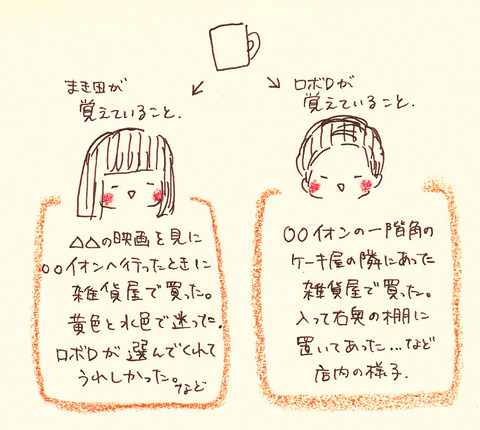 まき田が
覚えていること.
ロボDが
覚えていること.
△△の映画を見に
○○イオンへ行ったときに
雑貨屋で買った。
黄色と水色で迷った.
ロボDが選んでくれて
うれしかった。など
○○イオンの一階角の
ケーキ屋の隣にあった
雑貨屋で買った。
入って右奥の棚に
置いてあった…など
店内の様子.